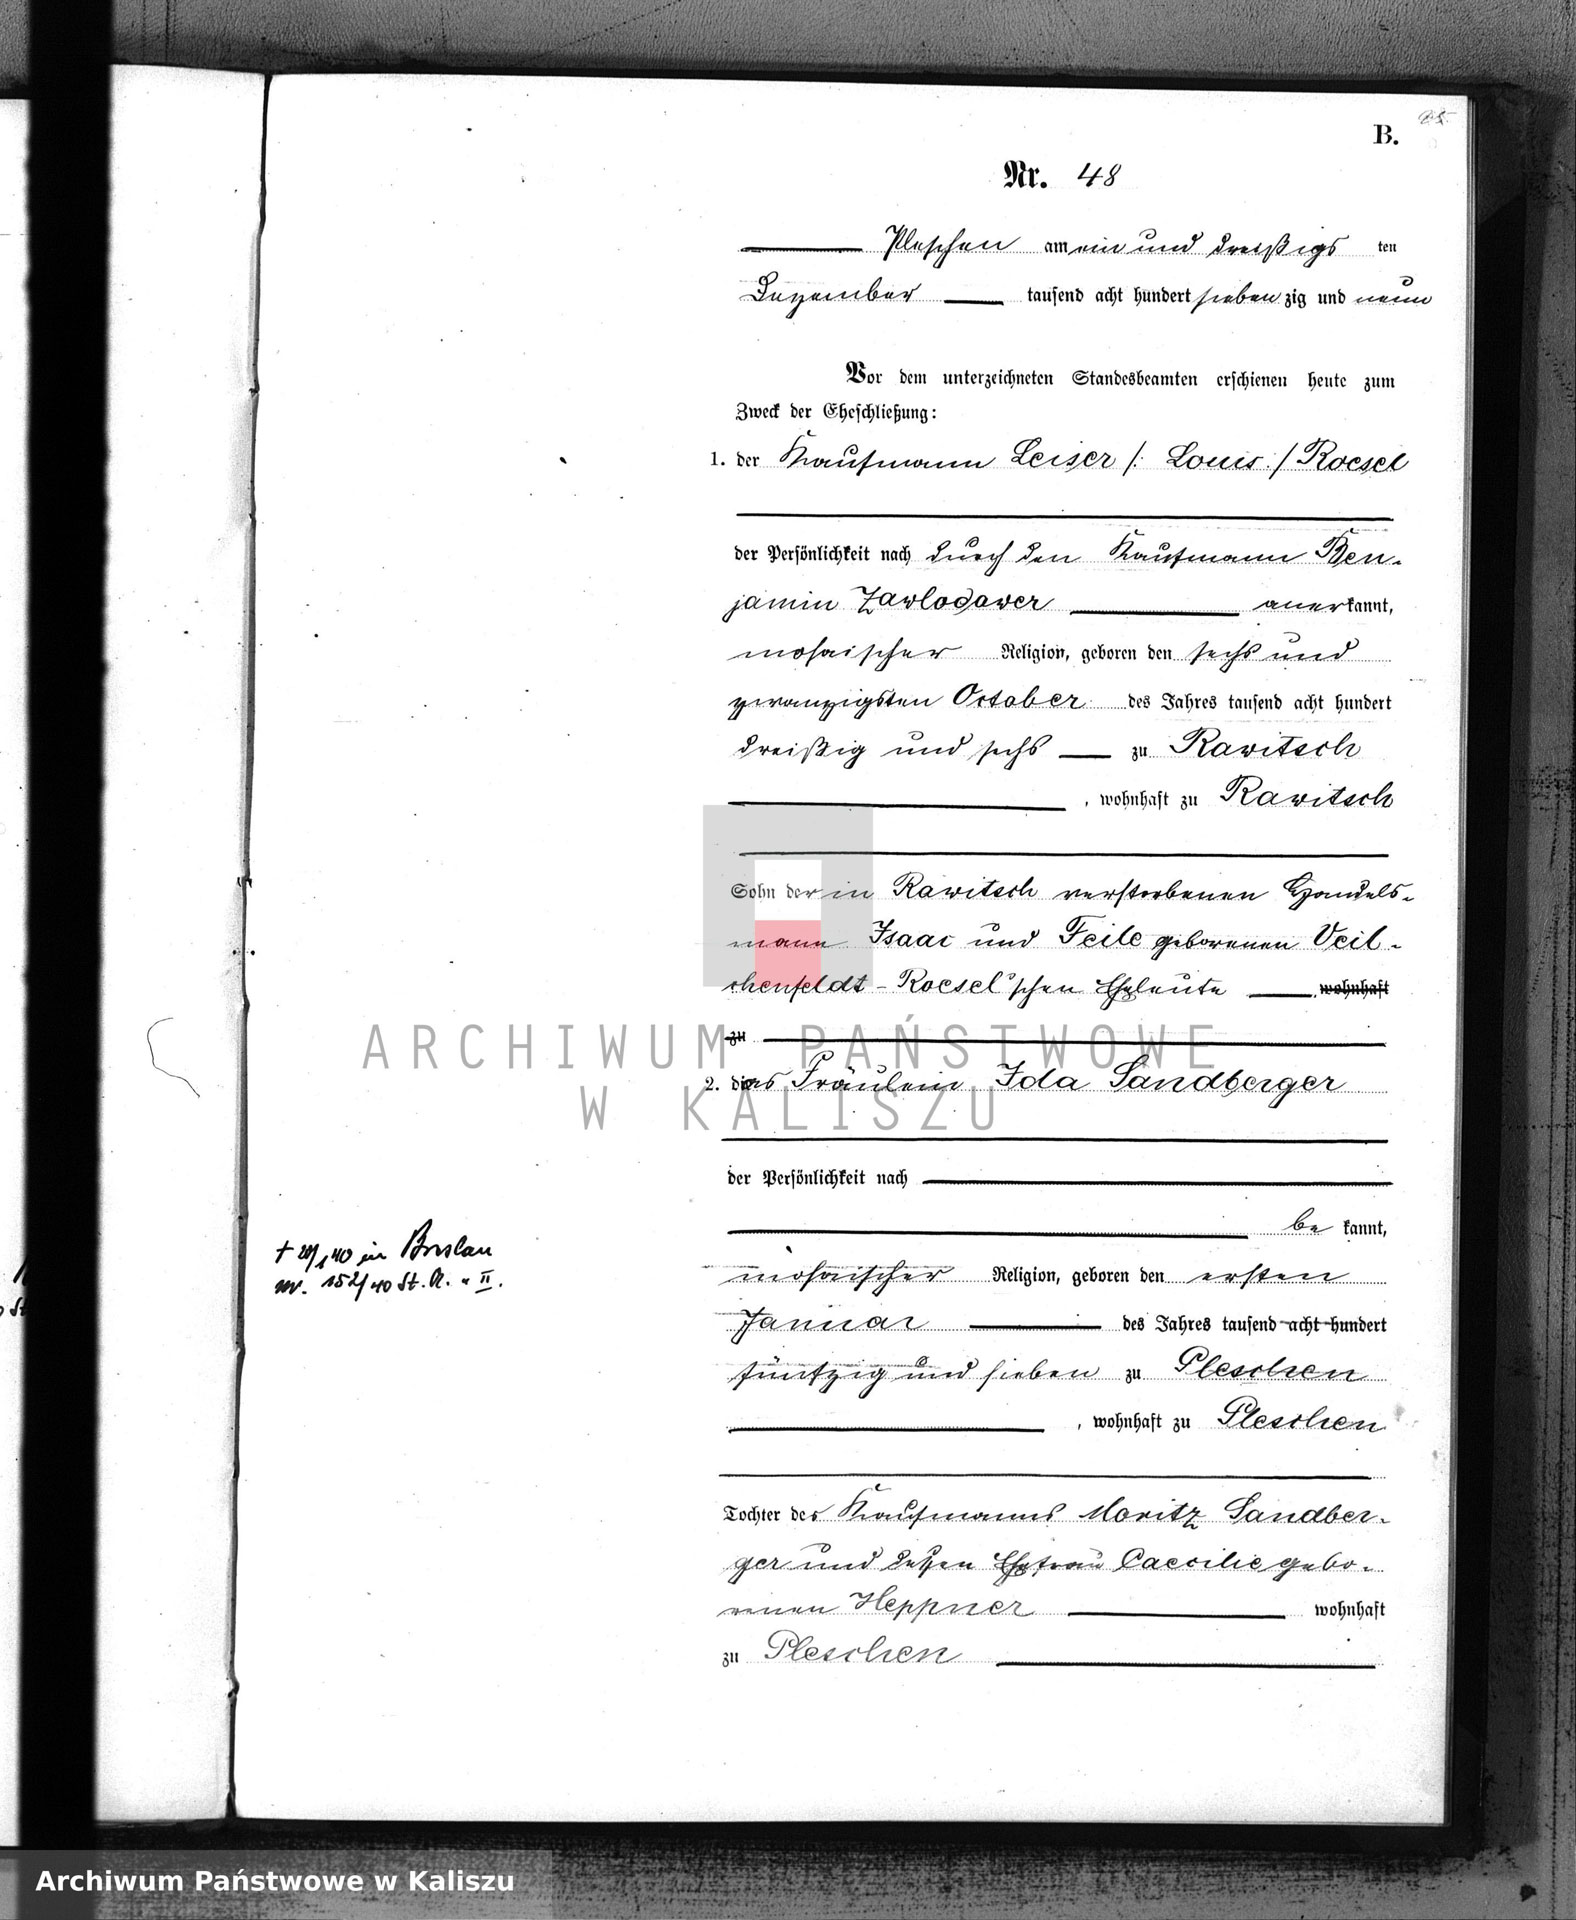 B.
Nr. 48
Pleschen am ein und dreißigs ten
Dezember tausend acht hundert sieben zig und neun
Vor dem unterzeichneten Standesbeamten erschienen heute zum
Zweck der Eheschließung:
1. der Kaufmann Leiser /: Louis :/ Roesel
der Persönlichkeit nach durch den Kaufmann Ben-
jamin Zawlodower anerkannt,
mosaischer Religion, geboren den sechs und
zwanzigsten October des Jahres tausend acht hundert
dreißig und sechs zu Rawitsch
, wohnhaft zu Rawitsch
Sohn der in Rawitsch verstorbenen Handels-
mann Isaac und Feile geborenen Veil-
chenfeldt-Roesel'schen Eheleute wohnhaft
zu
ARCHIWUM PAŃSTWOWE
2. das Fräulein Ida Sandberger
W KALISZU
der Persönlichkeit nach
be kannt,
† in Breslau
nr. 152/40 St. A. II.
mosaischer Religion, geboren den ersten
Januar des Jahres tausend acht hundert
fünfzig und sieben zu Pleschen
, wohnhaft zu Pleschen
Tochter des Kaufmanns Moritz Sandber-
ger und deßen Ehefrau Caecilie gebo-
renen Heppner wohnhaft
zu Pleschen
Archiwum Państwowe w Kaliszu